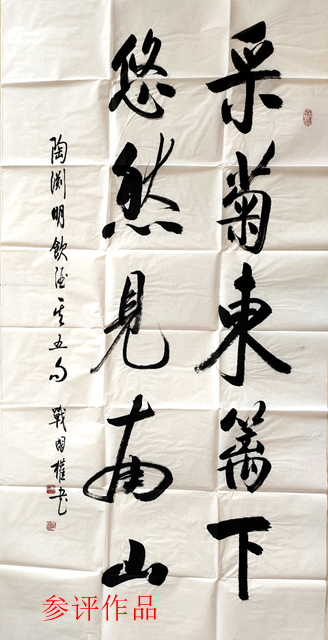 采菊東篱下
悠然见南山
陶渊明饮酒其五句 戰國權书
参评作品